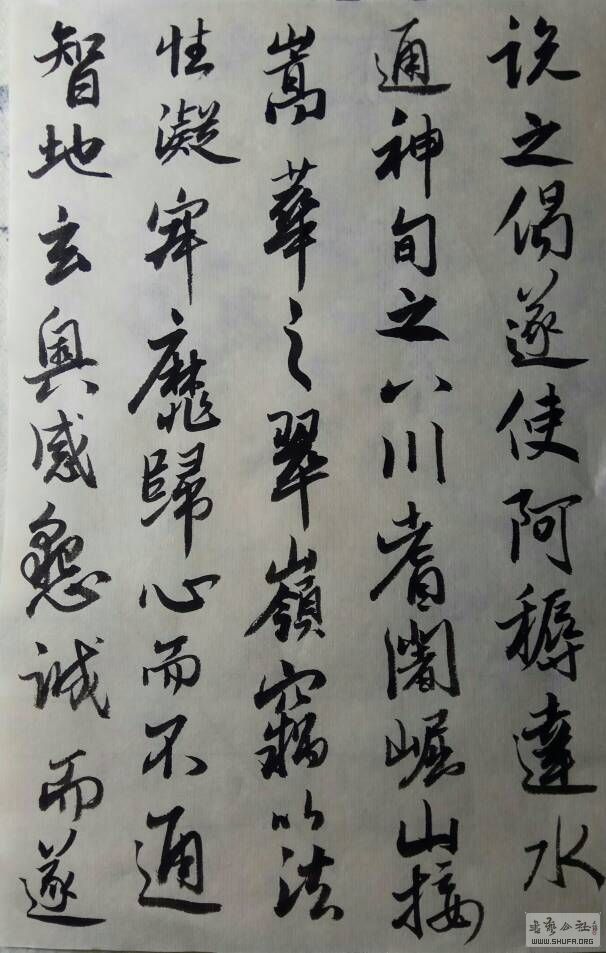 説之偈遂使阿耨達水
通神旬之八川耆闍崛山接
嵩華之翠嶺竊以法
性凝寂靡歸心而不通
智地玄奧感懇誠而遂
WWW.SHUFA.ORG